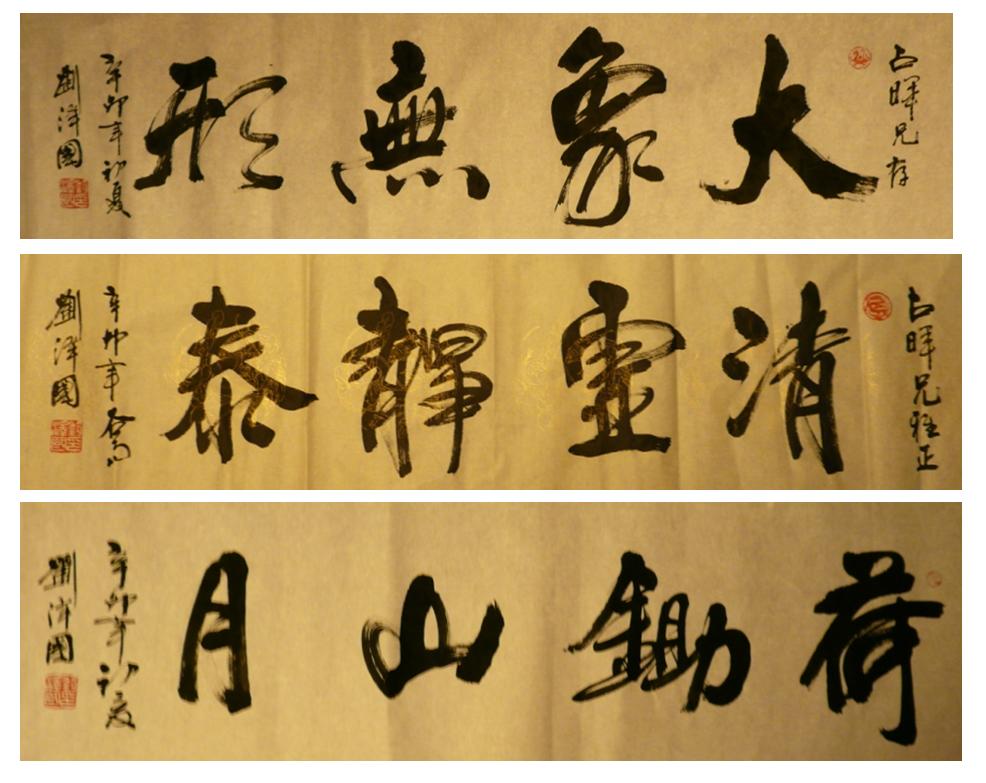 占暉兄存
大象無形
辛卯年初夏
劉洋國
占暉兄雅正
清靈靜泰
辛卯年春寫
劉洋國
荷鋤山月
辛卯年初夏
劉洋國